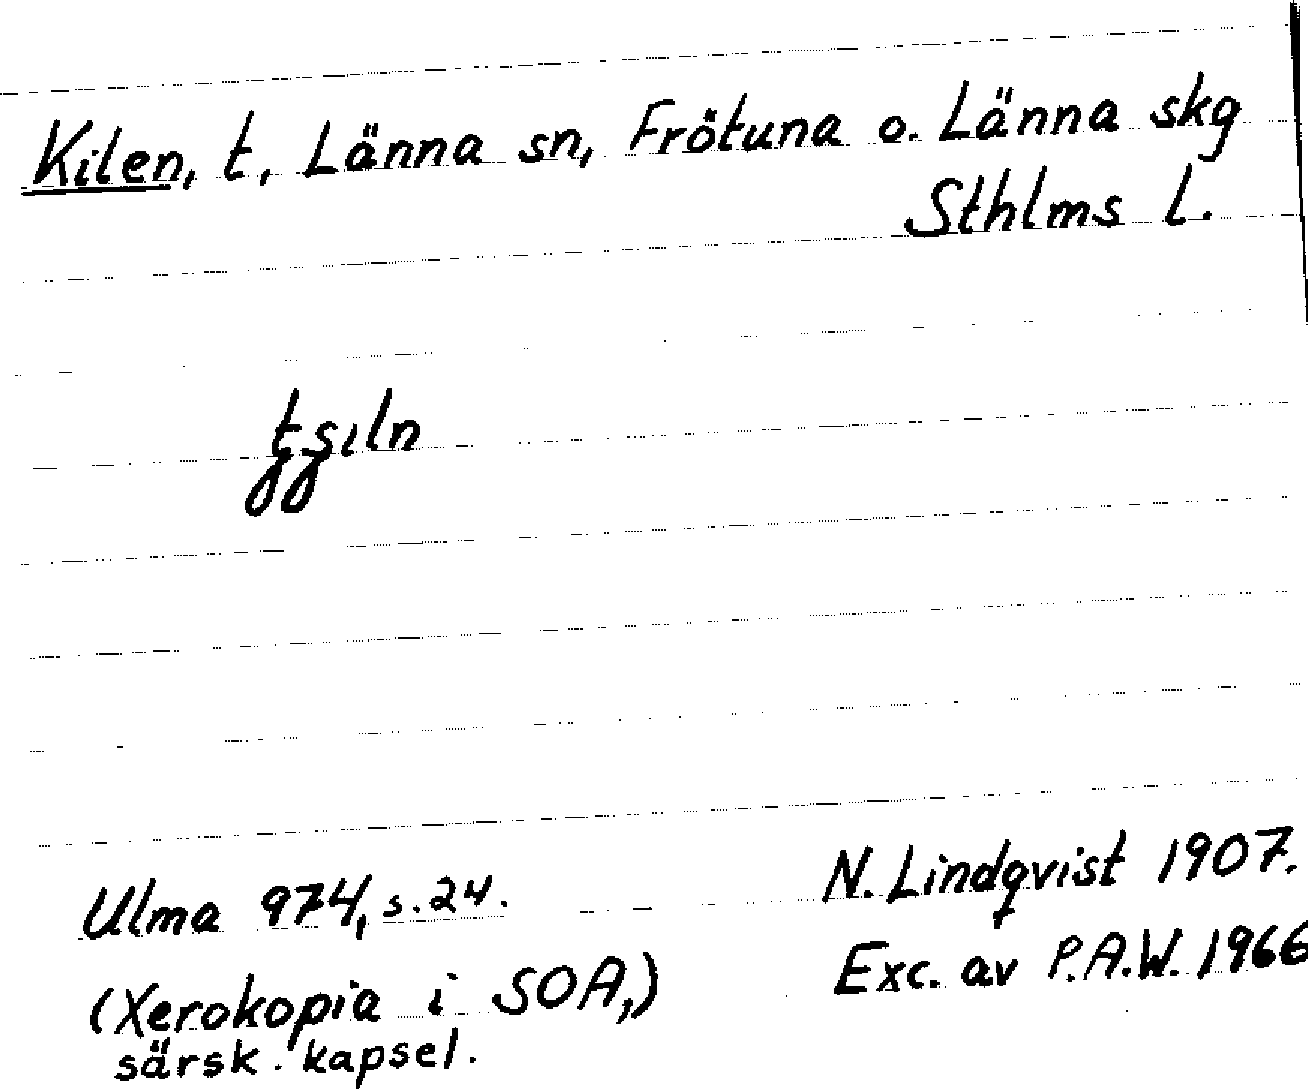 Kilen, t, Länna sn, Frötuna o. Länna skg
Sthlms l.
Ulma 974, s. 24.
N. Lindqvist 1907.
(Xerokopia i SOA,)
Exc. av P.A.W. 1966
särsk. kapsel.